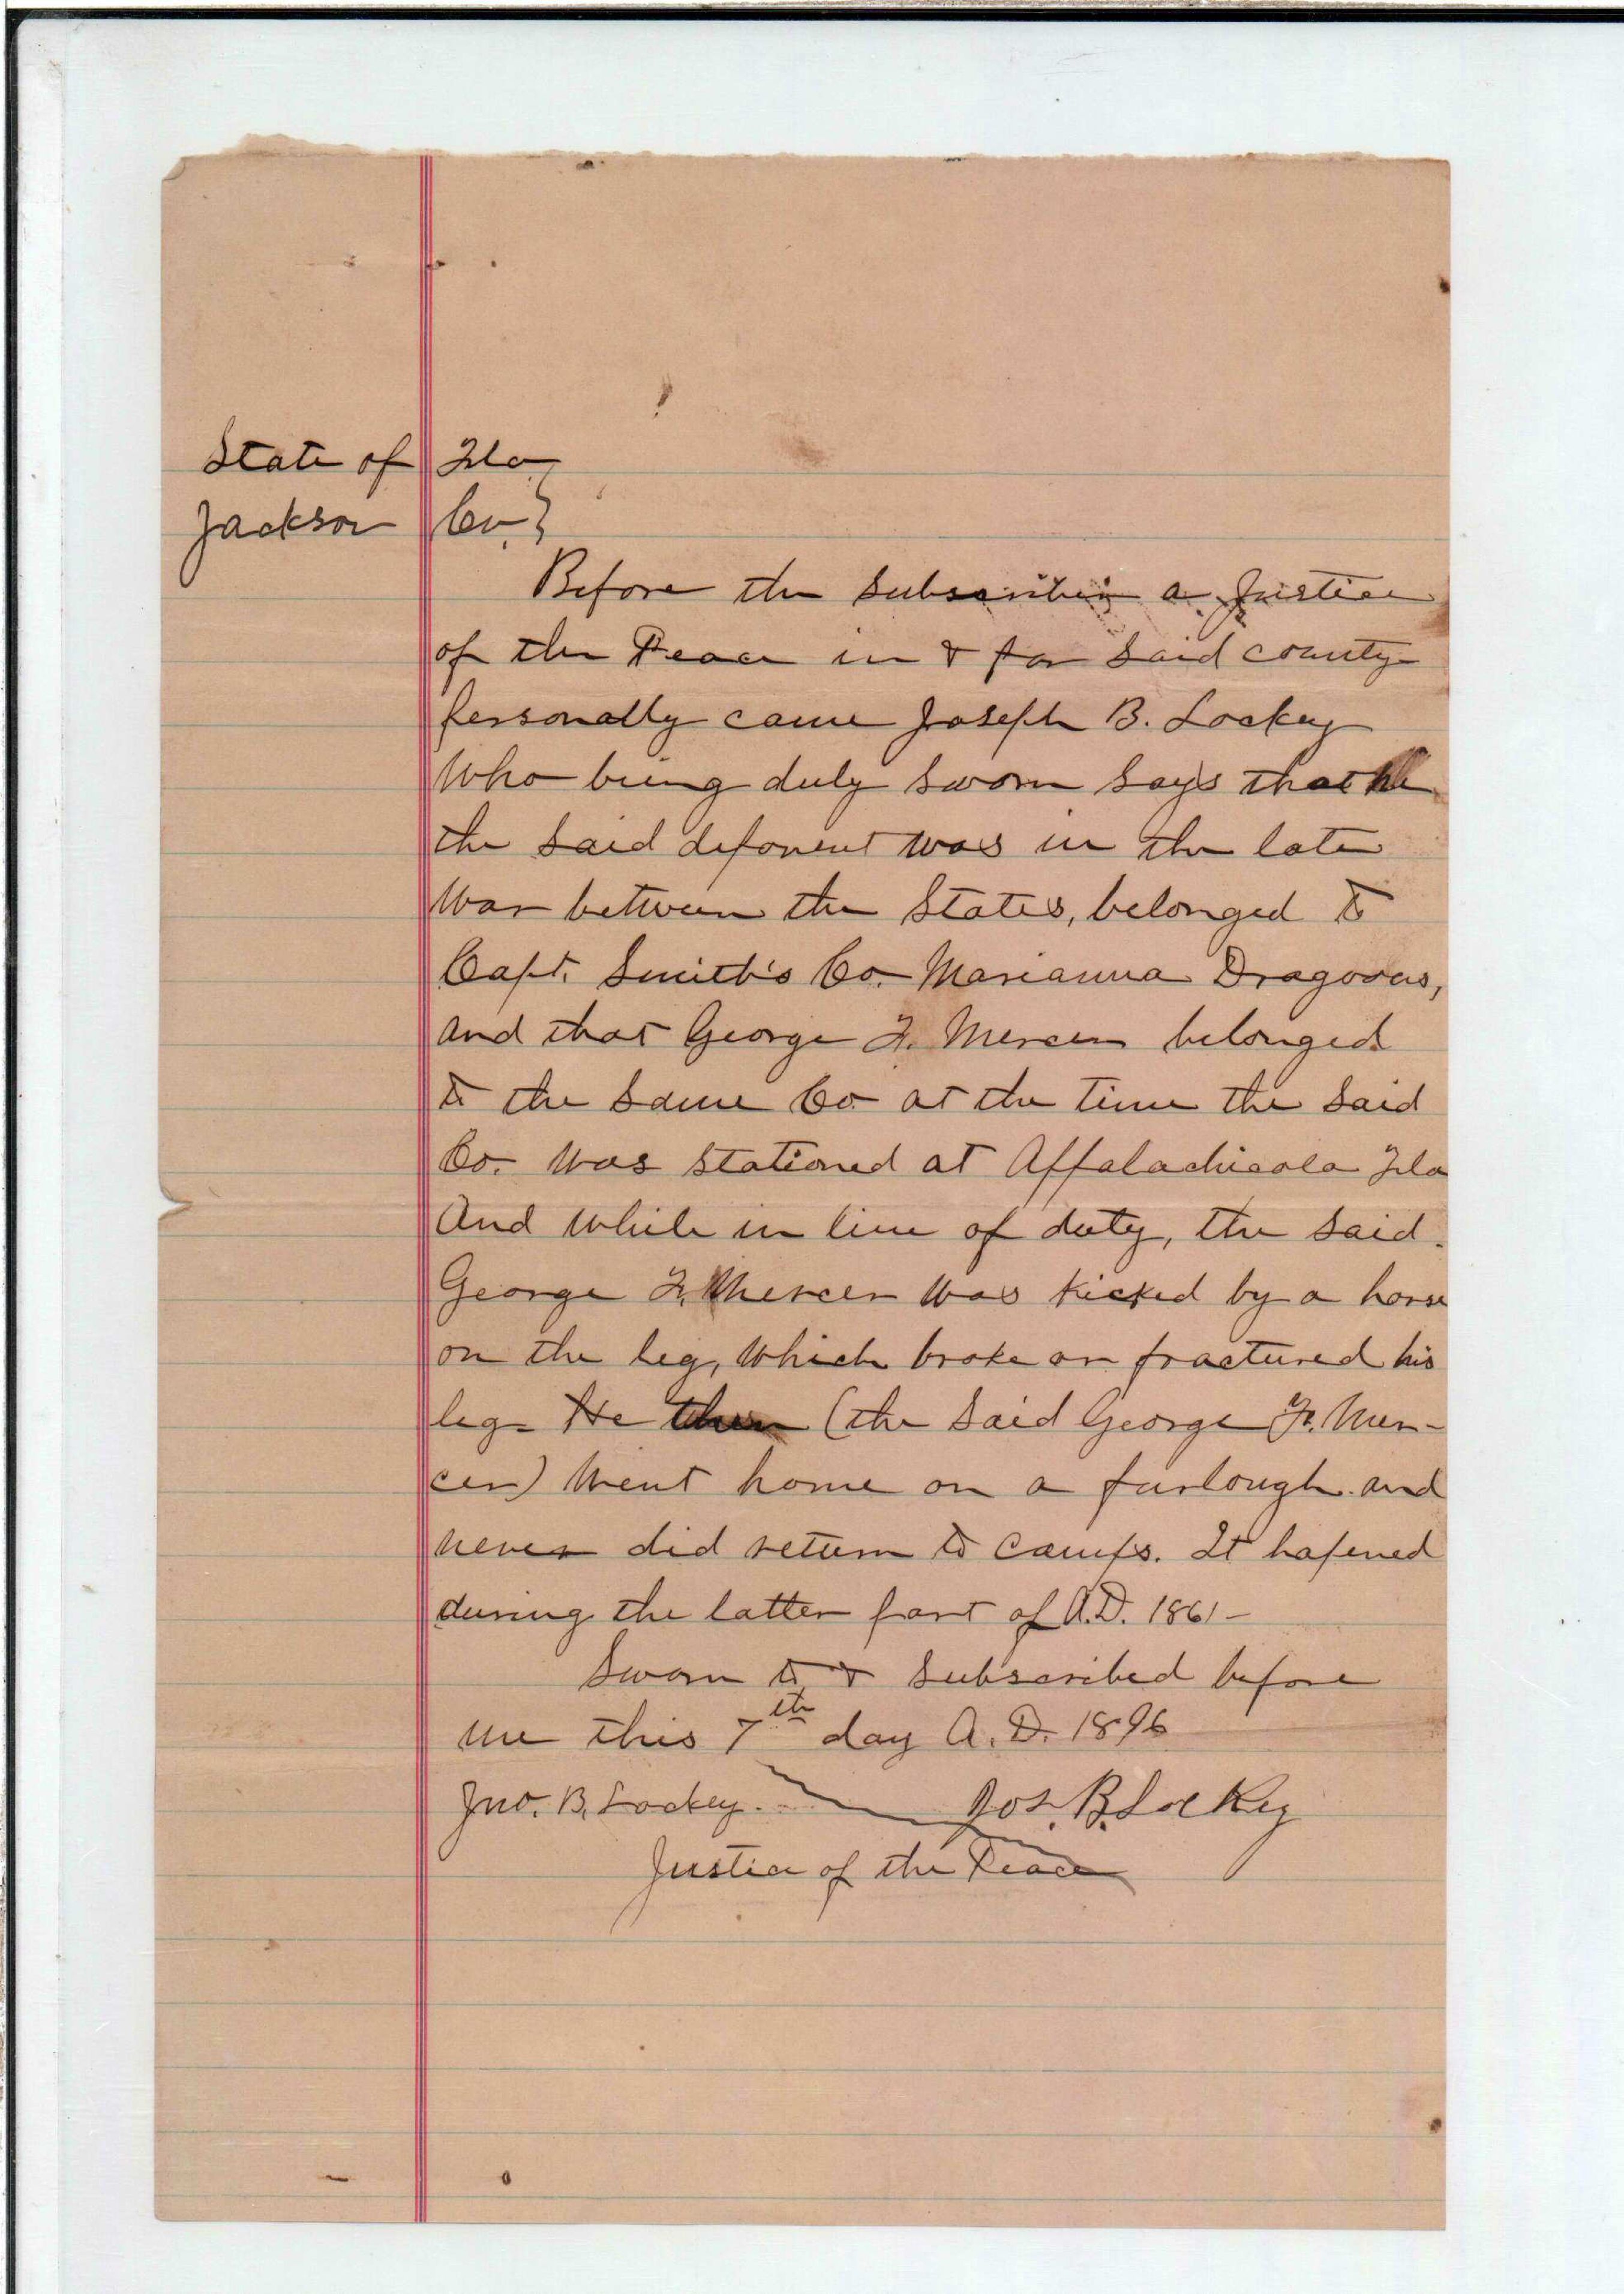 State of Fla
Jackson Co. }
Before the subscriber a Justice
of the Peace in & for said county
personally came Joseph B. Lockey
Who being duly sworn says that he
the said deponent was in the late
War between the States, belonged to
Capt. Smith's Co. Marianna Dragoons,
and that George F. Mercer belonged
to the same Co at the time the said
Co. was stationed at Appalachicola Fla
And while in line of duty, the said
George F. Mercer was kicked by a horse
on the leg, which broke or fractured his
leg- He then (the said George F. Mer-
cer) went home on a furlough and
never did return to camps. It hapened
during the latter part of A.D. 1861-
Sworn to & subscribed before
me this 7th day A.D. 1896
Jno. B. Lockey. Jos. B. Lockey
Justice of the Peace